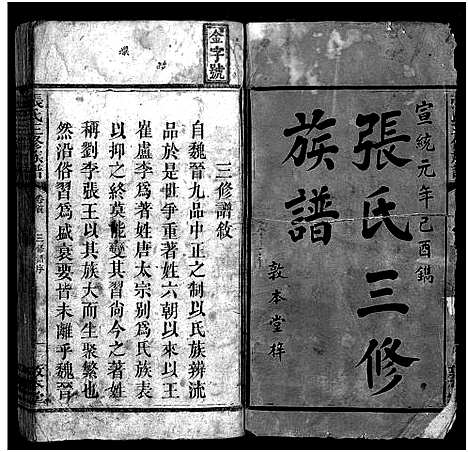 宣統元年己酉鐫
張氏三修
族譜
敦本堂梓
金字號
三修譜敘
自魏晉九品中正之制以氏族辨流
品於是世爭重著姓六朝以來以王
崔盧李為著姓唐太宗別為氏族表
以抑之終莫能變其習尚今之著姓
稱劉李張王以其族大而生聚繁也
然沿俗習為盛衰要皆未離乎魏晉